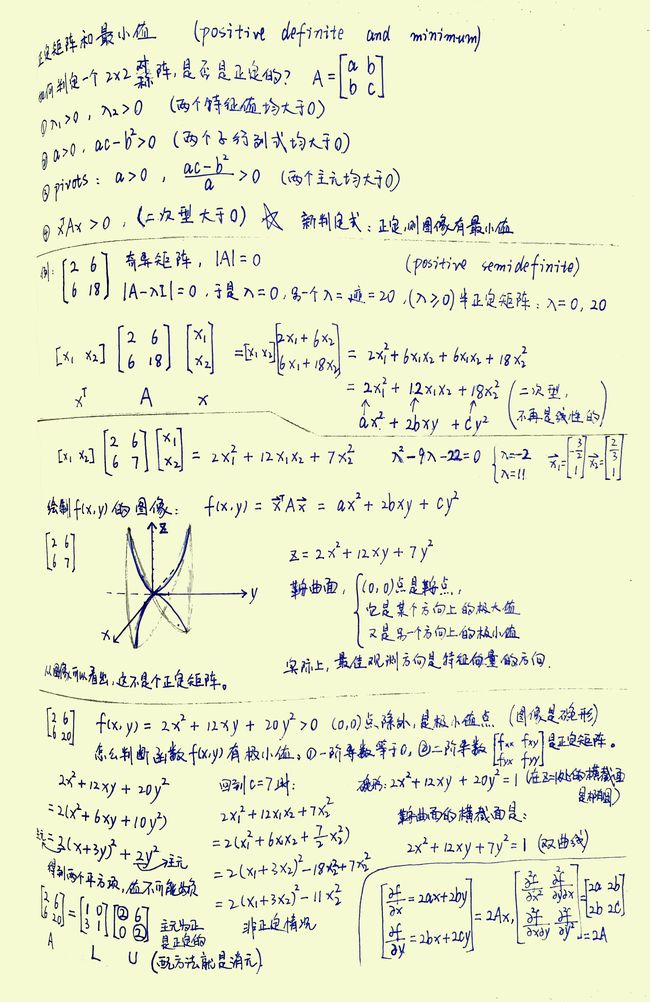 正定矩阵和最小值 (positive definite and minimum)
如何判定一个2×2对称阵，是否是正定的? A=[a b; b c]
① λ₁>0, λ₂>0 (两个特征值均大于0)
② a>0, ac-b²>0 (两个子行列式均大于0)
③ pivots: a>0, (ac-b²)/a >0 (两个主元均大于0)
④ xᵀAx>0, (二次型大于0) ☆ 新判定式: 正定,则图像有最小值
例: [2 6; 6 18] 奇异矩阵, |A|=0 (positive semidefinite)
|A-λI|=0, 于是λ=0, 另一个λ=迹=20, (λ≥0)半正定矩阵: λ=0, 20
[x₁ x₂] [2 6; 6 18] [x₁; x₂] =[x₁ x₂][2x₁+6x₂; 6x₁+18x₂] = 2x₁²+6x₁x₂+6x₁x₂+18x₂²
xᵀ A x
= 2x₁²+12x₁x₂+18x₂² (二次型, 不再是线性的)
ax²+2bxy+cy²
[x₁ x₂] [2 6; 6 7] [x₁; x₂] = 2x₁²+12x₁x₂+7x₂² λ²-9λ-22=0 {λ=-2 λ=11 x⃗₁=[-3/2; 1] x⃗₂=[2/3; 1]
绘制f(x,y)的图像: f(x,y)=x⃗ᵀAx⃗ = ax²+2bxy+cy²
[2 6; 6 7]
z
y
x
z=2x²+12xy+7y²
鞍曲面, {(0,0)点是鞍点,
它是某个方向上的极大值
又是另一个方向上的极小值
实际上, 最佳观测方向是特征向量的方向.
从图像可以看出, 这不是个正定矩阵。
[2 6; 6 20] f(x,y)=2x²+12xy+20y²>0 (0,0)点除外, 是极小值点 (图像是碗形)
怎么判断函数f(x,y)有极小值。①一阶导数等于0, ②二阶导数[fxx fxy; fyx fyy]是正定矩阵。
2x²+12xy+20y²
=2(x²+6xy+10y²)
主元←=2(x+3y)²+2y²→主元
得到两个平方项, 值不可能为负
[2 6; 6 20] = [1 0; 3 1] [2 6; 0 2] 主元为正是正定的
A L U (配方法就是消元)
回到c=7时:
2x₁²+12x₁x₂+7x₂²
=2(x₁²+6x₁x₂+7/2x₂²)
=2(x₁+3x₂)²-18x₂²+7x₂²
=2(x₁+3x₂)²-11x₂²
非正定情况
碗形: 2x²+12xy+20y²=1 (在z=1处的横截面是椭圆)
鞍曲面的横截面是:
2x²+12xy+7y²=1 (双曲线)
[∂f/∂x=2ax+2by; ∂f/∂y=2bx+2cy]=2Ax, [∂²f/∂x² ∂²f/∂y∂x; ∂²f/∂x∂y ∂²f/∂y²]=[2a 2b; 2b 2c]=2A